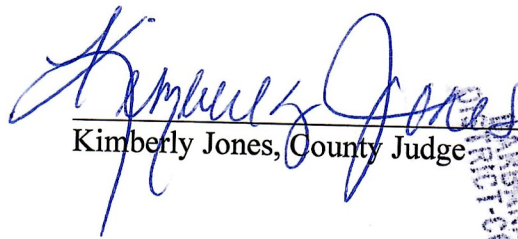 Kimberly Jones
Kimberly Jones, County Judge